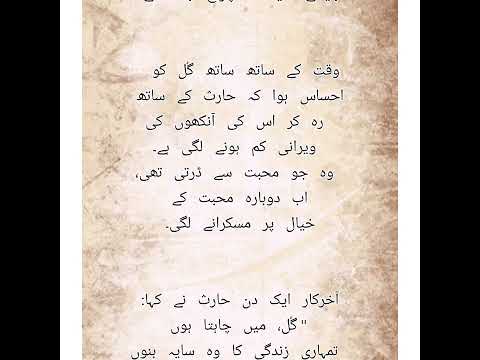 وقت کے ساتھ ساتھ گُل کو
احساس ہوا کہ حارث کے ساتھ
رہ کر اس کی آنکھوں کی
ویرانی کم ہونے لگی ہے۔
وہ جو محبت سے ڈرتی تھی،
اب دوبارہ محبت کے
خیال پر مسکرانے لگی۔
آخرکار ایک دن حارث نے کہا:
"گُل، میں چاہتا ہوں
تمہاری زندگی کا وہ سایہ بنوں